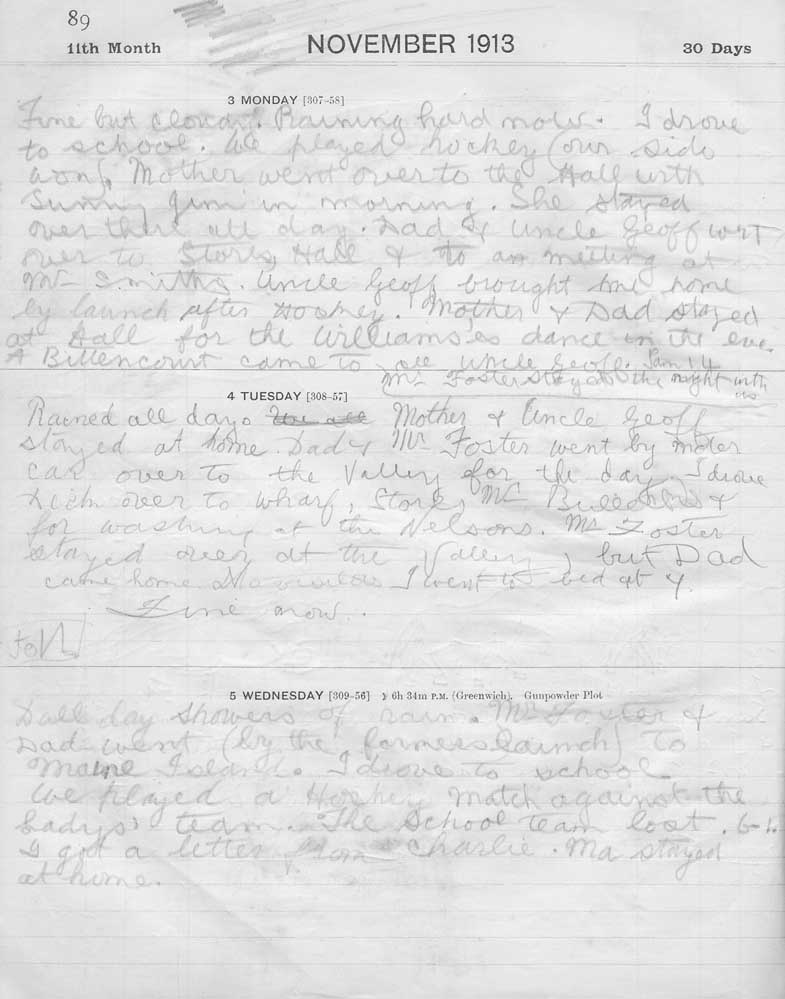 89
11th Month NOVEMBER 1913 30 Days
3 MONDAY [307-58]
Fine but cloudy. Raining hard now. I drove
to school. We played hockey (our side
won). Mother went over to the Hall with
Sunny Jim in morning. She stayed
over there all day. Dad & Uncle Geoff went
over to Stores, Hall & to an meeting at
Mr Smiths. Uncle Geoff brought me home
by launch after Hockey. Mother & Dad stayed
at Hall for the Williams,es dance in the eve.
A Bittencourt came to see Uncle Geoff.
Mr Foster stayed the night with
us
4 TUESDAY [308-57]
Rained all day. Mother & Uncle Geoff
stayed at home. Dad & Mr Foster went by moter
car over to the Valley for the day. I drove
over to wharf, Stores, Mr Bullocks &
for washing at the Nelsons. Mr Foster
stayed over at the Valley, but Dad
came home No visitors I went to bed at 9.
Fine now.
5 WEDNESDAY [309-56] ☽ 6h 34m P.M. (Greenwich). Gunpowder Plot
Dall day showers of rain. Mr Foster &
Dad went (by the formers launch) to
Maine Island. I drove to school
We played a Hockey match against the
Ladys' team. The School team lost. 6-1.
I got a letter from Charlie. Ma stayed
at home.